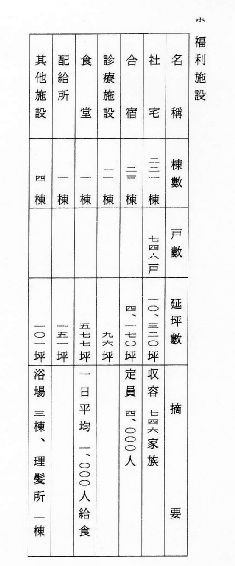 ホ 福利施設
名稱 棟數 戸數 延坪數 摘要
社宅 二三一棟 七四八戸 一〇、三二〇坪 収容 七四六家族
合宿 二三棟 四、一七〇坪 定員 四、〇〇〇人
診療施設 二棟 九六坪
食堂 一棟 五七七坪 一日平均 一、〇〇〇人給食
配給所 一棟 一五一坪
其他施設 四棟 一〇一坪 浴場 三棟、理髪所 一棟